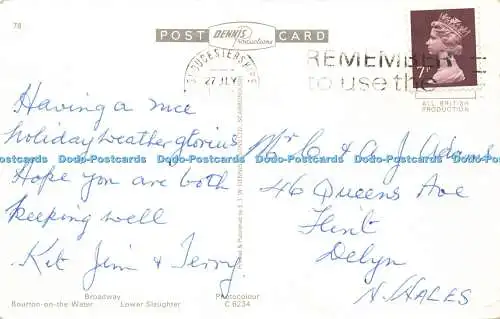 78
POST DENNIS Productions CARD
GLOUCESTERSHIRE
27 JLY
REMEMBER
to use the
7P
ALL BRITISH
PRODUCTION
Having a nice
holiday weather glorius
Hope you are both
keeping well
Kit Jim & Terry.
Mr C & A J Adams
46 Queens Ave
Flint
Delyn
N. WALES
Dodo-Postcards Dodo-Postcards Dodo-Postcards Dodo-Postcards Dodo-Postcards Dodo-Postcards
Broadway
Bourton-on-the Water Lower Slaughter
Photocolour
C 6234